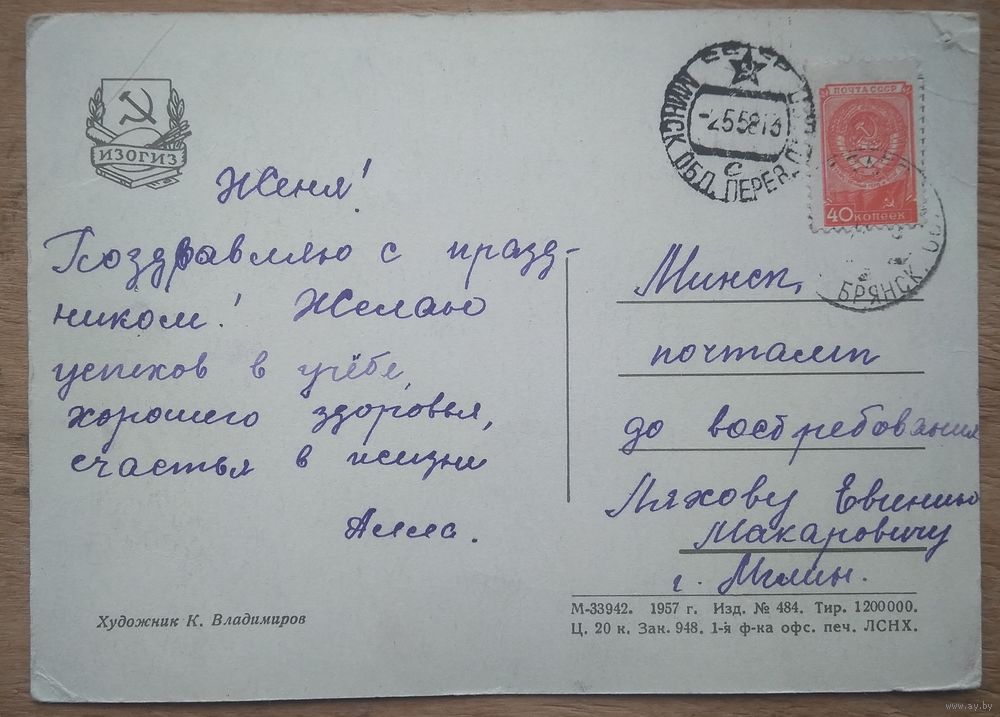 ИЗОГИЗ
Женя!
Поздравляю с празд-
ником! Желаю
успехов в учёбе,
хорошего здоровья,
счастья в жизни
Алла.
Художник К. Владимиров
МИНСК ОБД. ПЕРЕВ.
-2558
С
ПОЧТА СССР
40 КОПЕЕК
БРЯНСК.
Минск,
почтамт
до востребования
Ляхову Евгению
Макаровичу
г. Мглин.
М-33942. 1957 г. Изд. № 484. Тир. 1200000.
Ц. 20 к. Зак. 948. 1-я ф-ка офс. печ. ЛСНХ.
www.ay.by